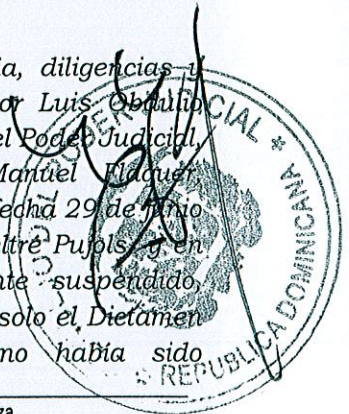 ia, diligencias y
or Luis Obdulio
el Poder Judicial,
Manuel Flaquer,
fecha 29 de junio
eltré Pujols, y en
nte suspendido,
solo el Dictamen
no había sido
za
PODER JUDICIAL * REPUBLICA DOMINICANA